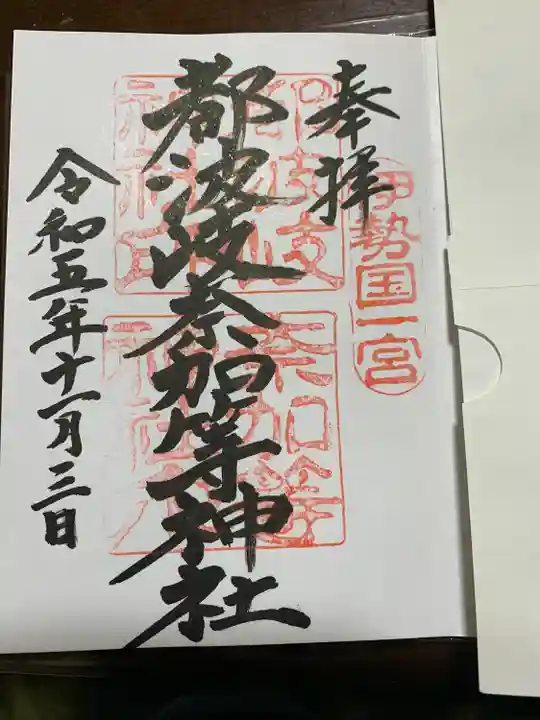 奉拝
伊勢国一宮
都波岐奈加等神社
令和五年十一月三日